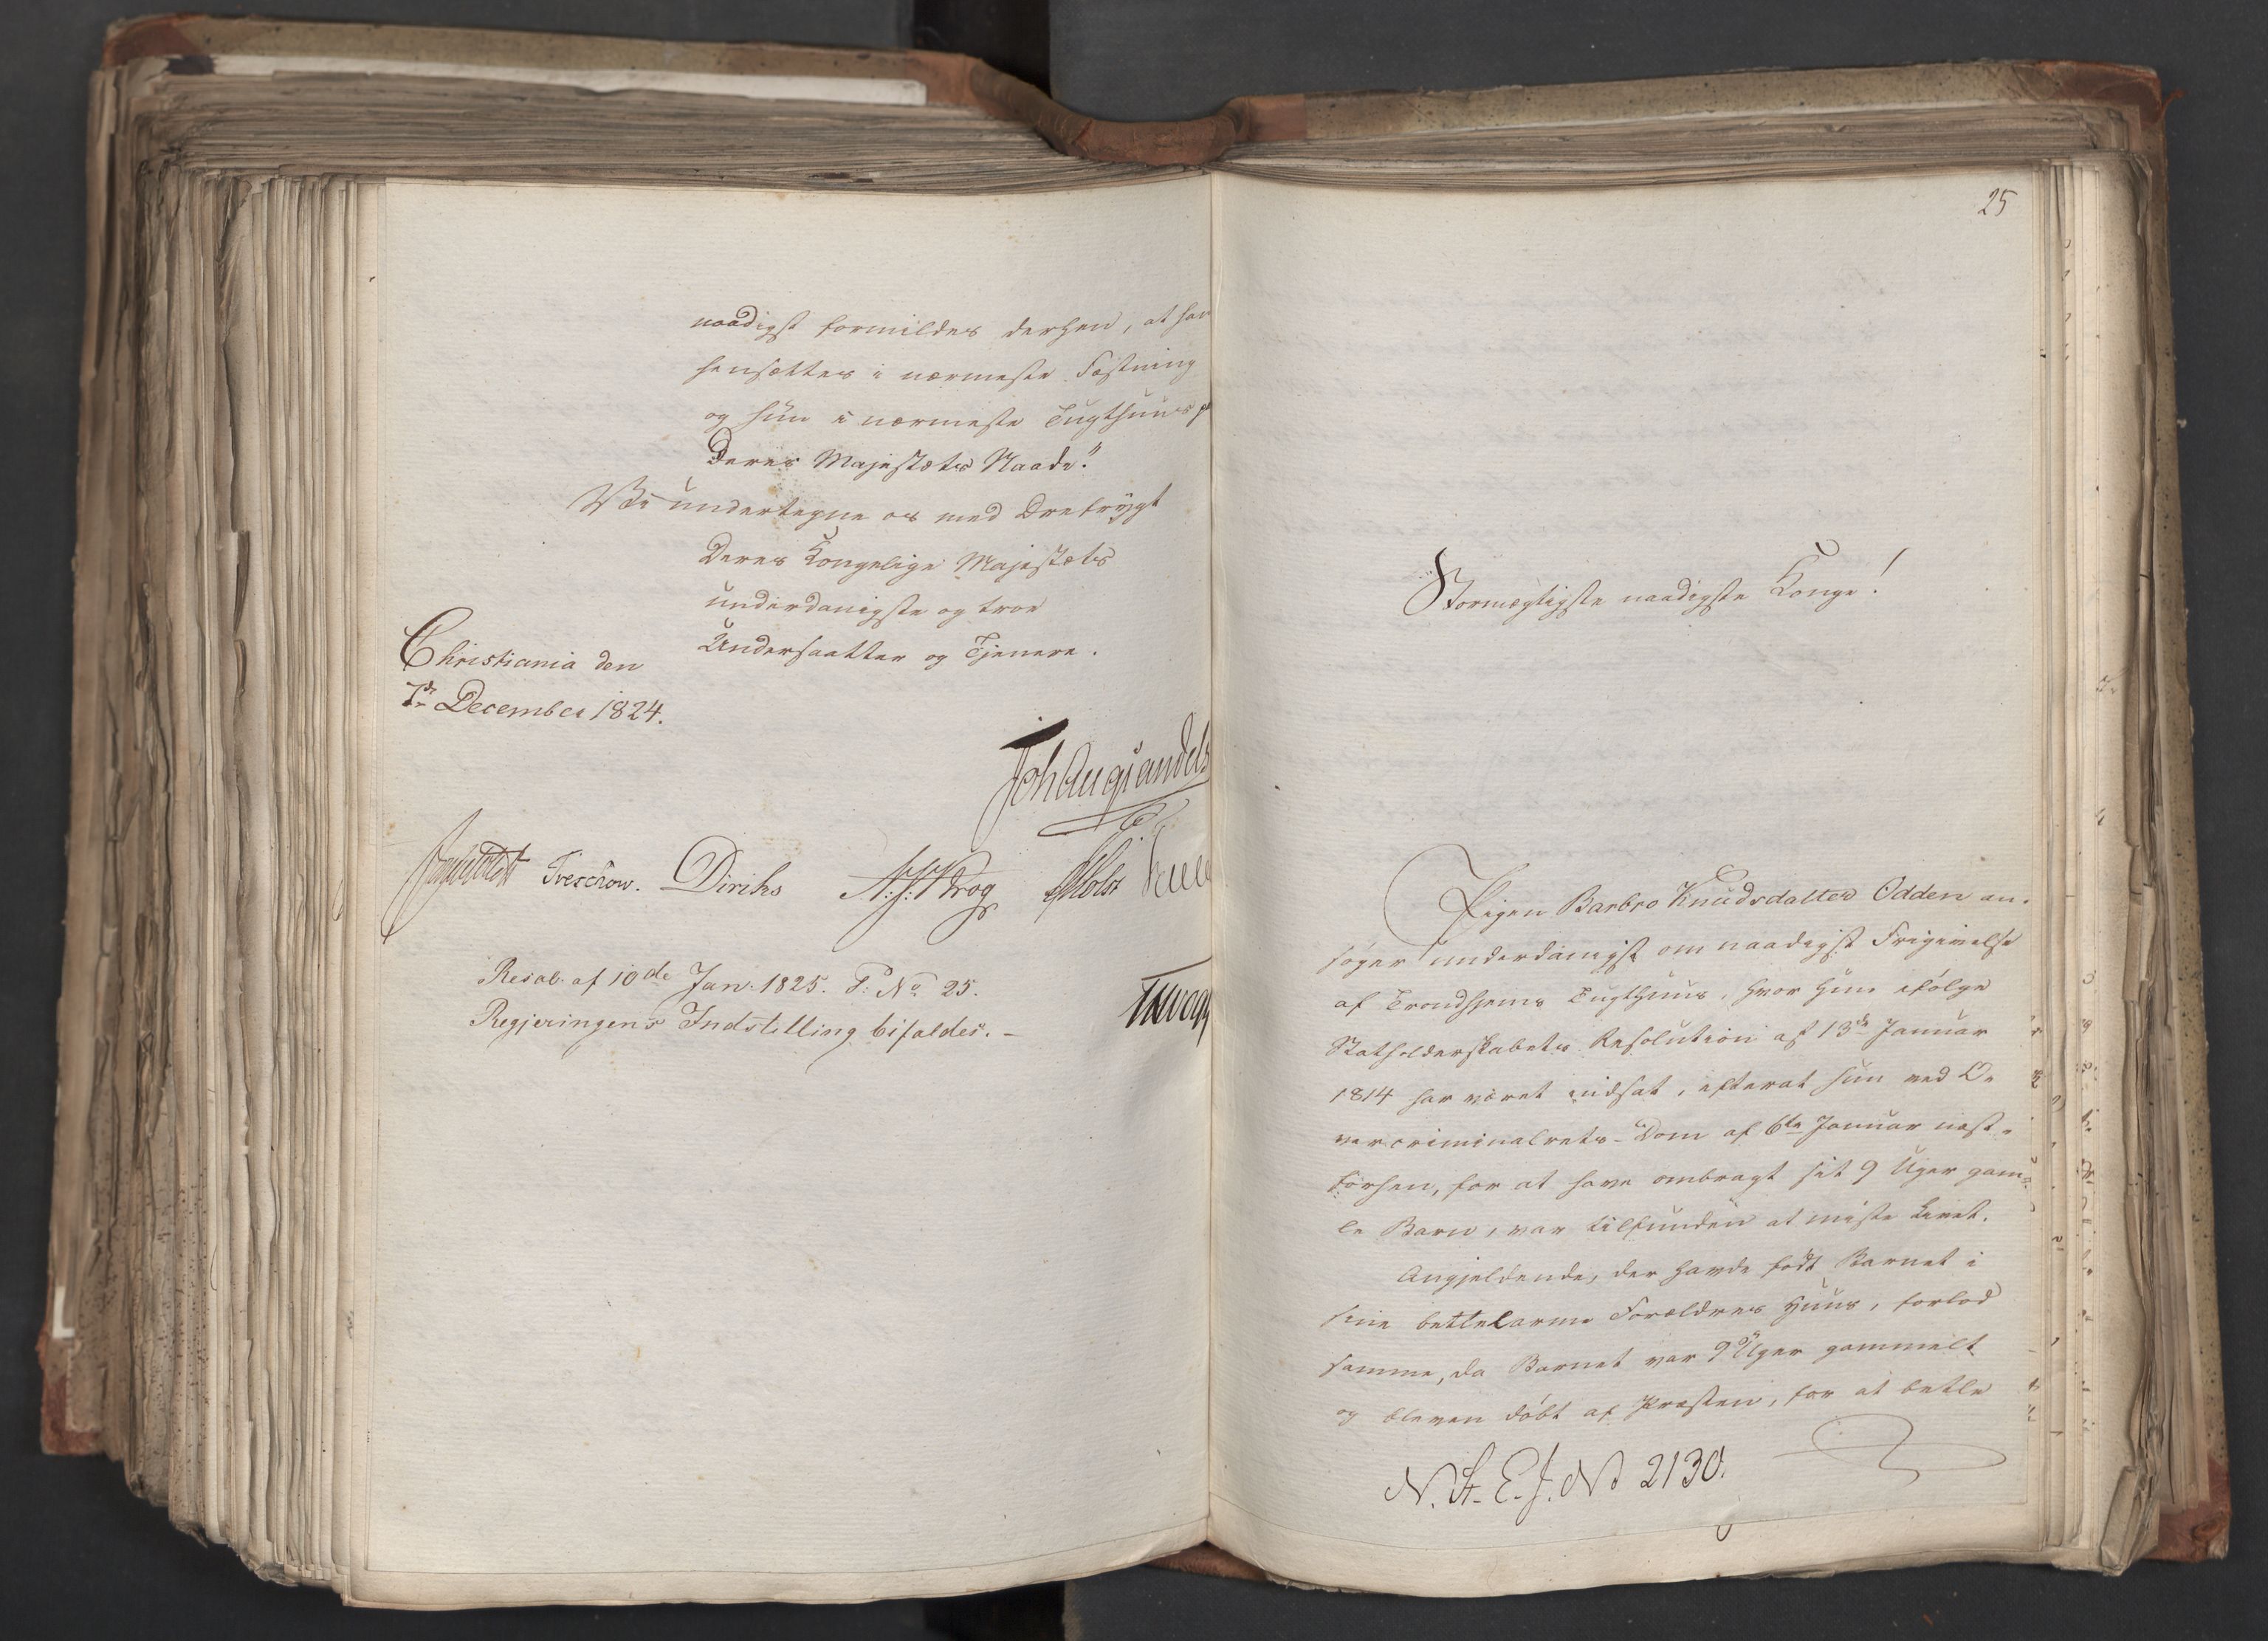 naadigst formildes derhen, at han
hensættes i nærmeste Fæstning
og hun i nærmeste Tugthuus p
Deres Majestæts Naade."
Vi undertegne os med Drefrygt
Deres Kongelige Majestæts
underdanigste og troe
Undersaatter og Tjenere.
Christiania den
7de December 1824.
Joh Aug Sandels
Treschow. Diriks Holst
Resol. af 10de Jan. 1825. P. No 25.
Regjeringens Indstilling bifaldes. -
25
Stormægtigste naadigste Konge!
Pigen Barbro Knudsdatter Odden an-
søger underdanigst om naadigst Frigivelse
af Trondhjems Tugthuus, hvor hun ifølge
Statholderskabets Resolution af 13de Januar
1814 har været indsat, efterat hun ved O-
vercriminalrets-Dom af 6te Januar næst-
forhen, for at have ombragt sit 9 Uger gam-
le Barn, var tilfunden at miste Livet.
Angjeldende, der havde født Barnet i
sine bettelarme Forældres Huus, forlod
samme, da Barnet var 9 Uger gammelt
og bleven døbt af Præsten, for at betle
N. St. E. J. No 2130.